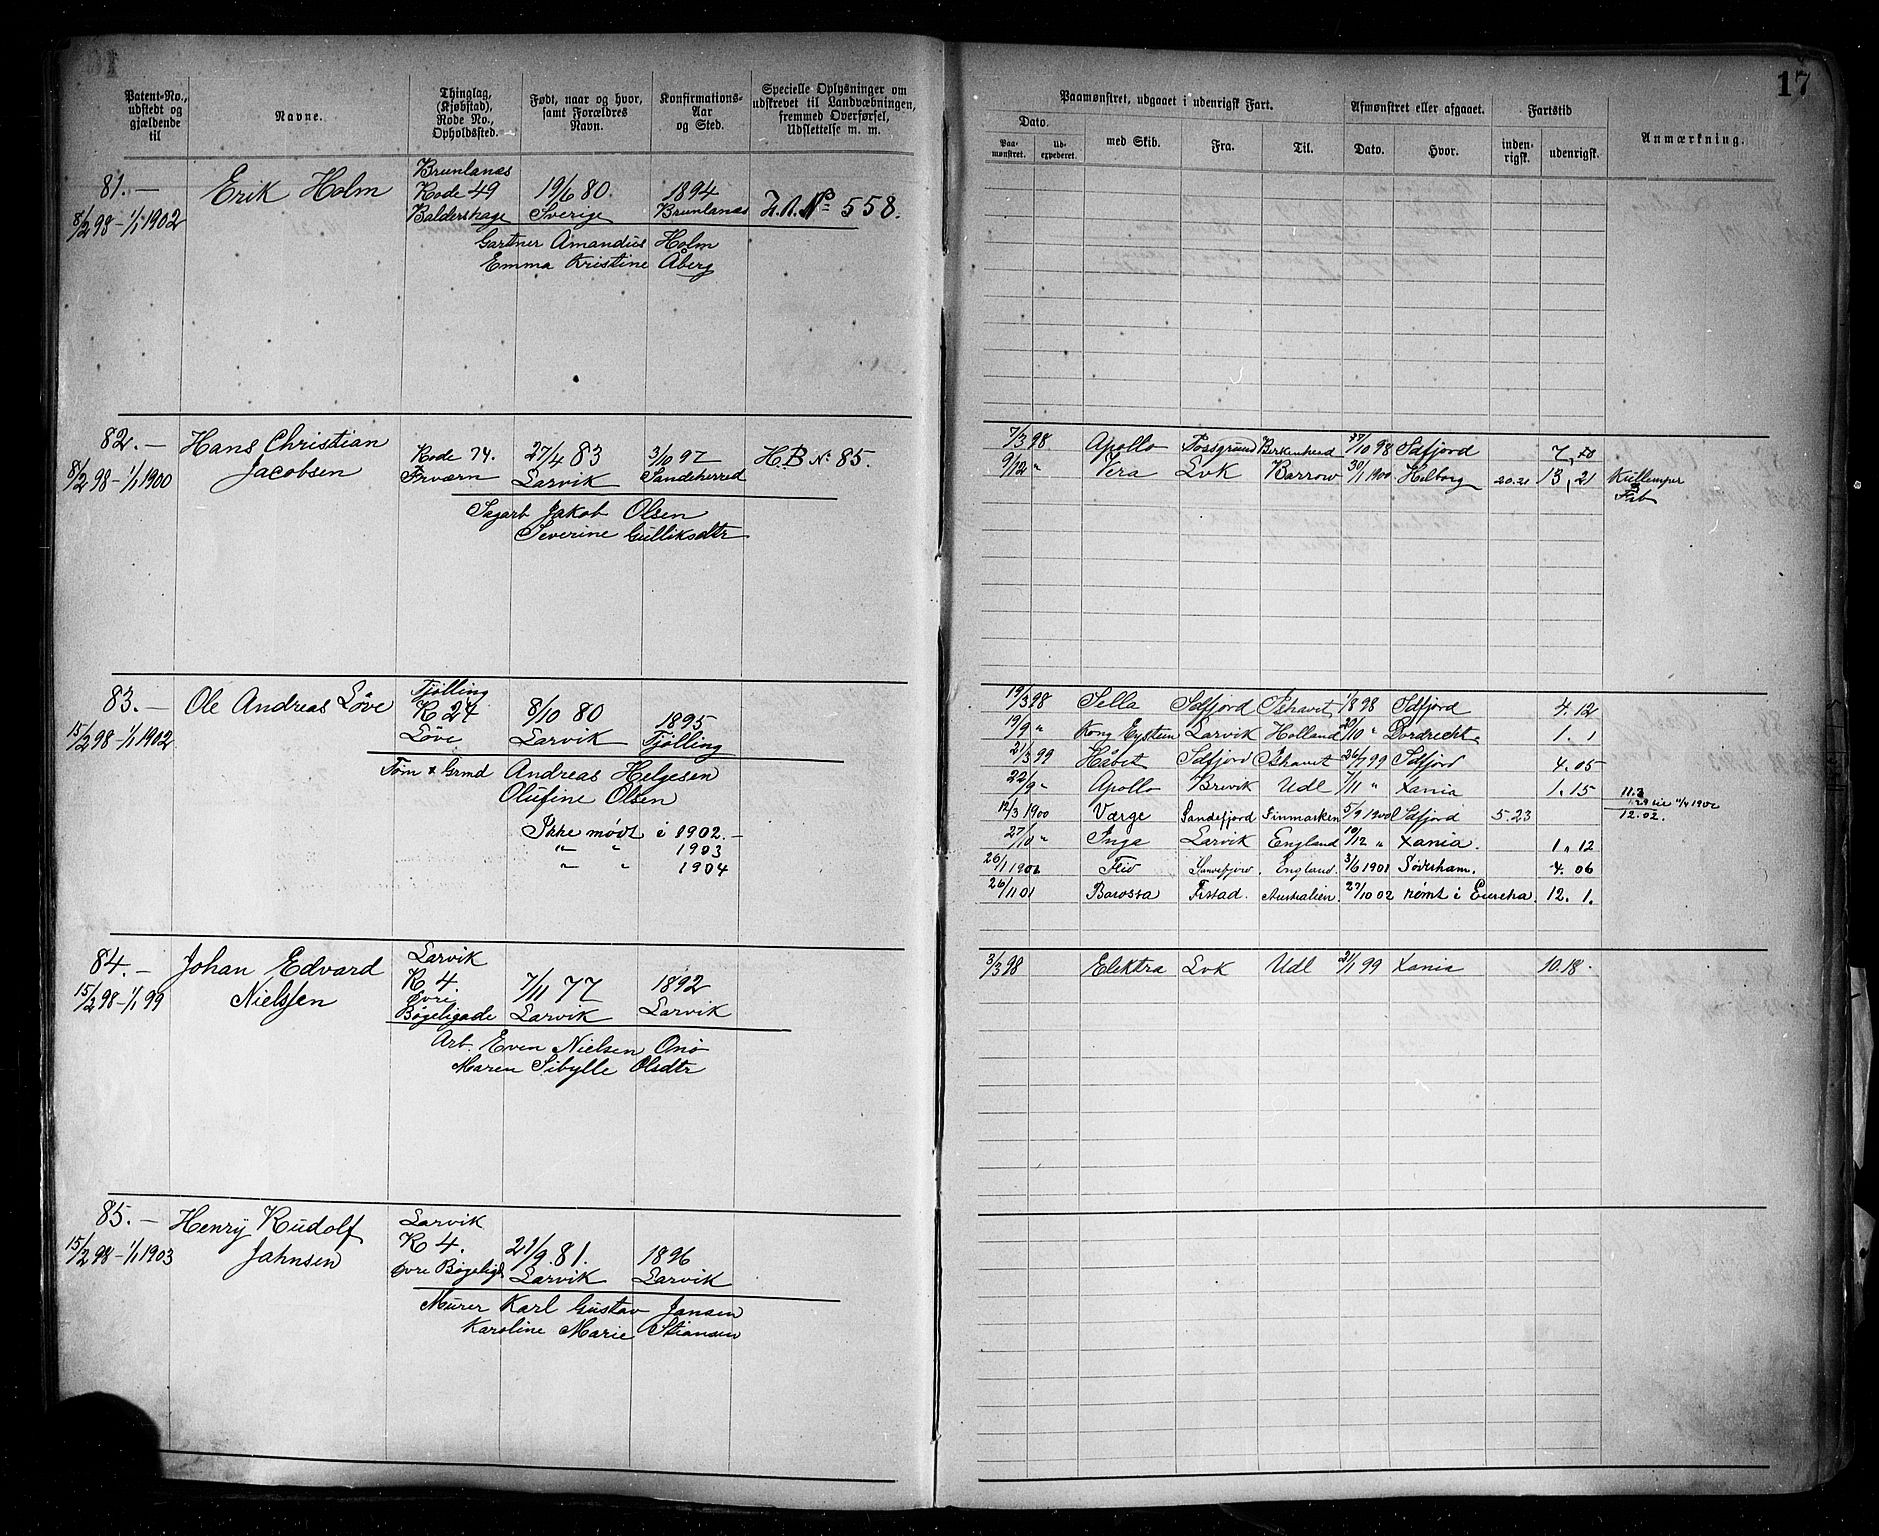 17
Patent-No., udstedt og gjældende til
Navne.
Thinglag, (Kjøbstad), Rode No., Opholdssted.
Født, naar og hvor, samt Forældres Navn.
Konfirmations-Aar og Sted.
Specielle Oplysninger om udskrevet til Landværbningen, fremmed Overførsel, Udslettelse m. m.
Paamønstret, udgaaet i udenrigsk Fart.
Afmønstret eller afgaaet.
Fartstid
Anmærkning.
Dato.
Paa-mønstret.
Ud-expederet.
med Skib.
Fra.
Til.
Dato.
Hvor.
inden-rigsk.
udenrigsk.
81.— Erik Holm Brunlanæs
Rode 49 19/6 80. 1894
8/2 98 – 1/1 1902 Baldershage Sverige Brunlanæs No 558.
Gartner Amandus Holm
Emma Kristine Åberg
82.— Hans Christian
Jacobsen Rode 74. 27/4 83 3/10 97 H.B. No 85.
8/2 98 – 1/1 1900 Larvik Sandeherred
Jakob Olsen
Severine Gulliksdtr
7/3 98 Apollo Birkenhead 10 98 Sdfjord
9/12 " Vera Lvk Barrow 30/1 1900 20.21 13, 21
83.— Ole Andreas Løve Tjølling
R 24 8/10 80 1895
15/2 98 – 1/1 1902 Løve Larvik Tjølling
Tøm & Grmd Andreas Helgesen
Olufine Olsen
Ikke mødt i 1902. –
" " 1903
" " 1904
19/3 98 Sella Sdfjord Ishavet 1/8 98 Sdfjord 4. 12
19/9 " Kong Eystein Larvik Holland 20/10 " Dordrecht 1. 1
21/3 99 Håbet Sdfjord Ishavet 26/7 99 Sdfjord 4. 05
22/9 " Apollo Brevik Udl 7/11 " Xania 1. 15
12/3 1900 Værge Sandefjord Finmarken 5/9 1900 Sdfjord 5. 23
12.02.
27/10 " Inga Larvik England 19/12 " Xania. 1. 12
26/1 1901 Sandefjord. England. 3/6 1901 4. 06
26/11 01 Barossa Frstad. Australien. 27/10 02 rømt i Eureka. 12. 1.
84.— Johan Edvard
Nielsen Larvik
R 4. 7/11 77 1892
15/2 98 – 1/1 99 Øvre
Bøgeligade Larvik Larvik
Arb. Even Nielsen Onø
Maren Sibylle Olsdtr
3/3 98 Elektra Lvk Udl 21/1 99 Xania 10. 18.
85.— Henry Rudolf
Jahnsen Larvik
R 4. 21/9. 81. 1896
15/2 98 – 1/1 1903 Øvre Bøgeligd Larvik Larvik
Murer Karl Gustav Jansen
Karoline Marie Stiansen